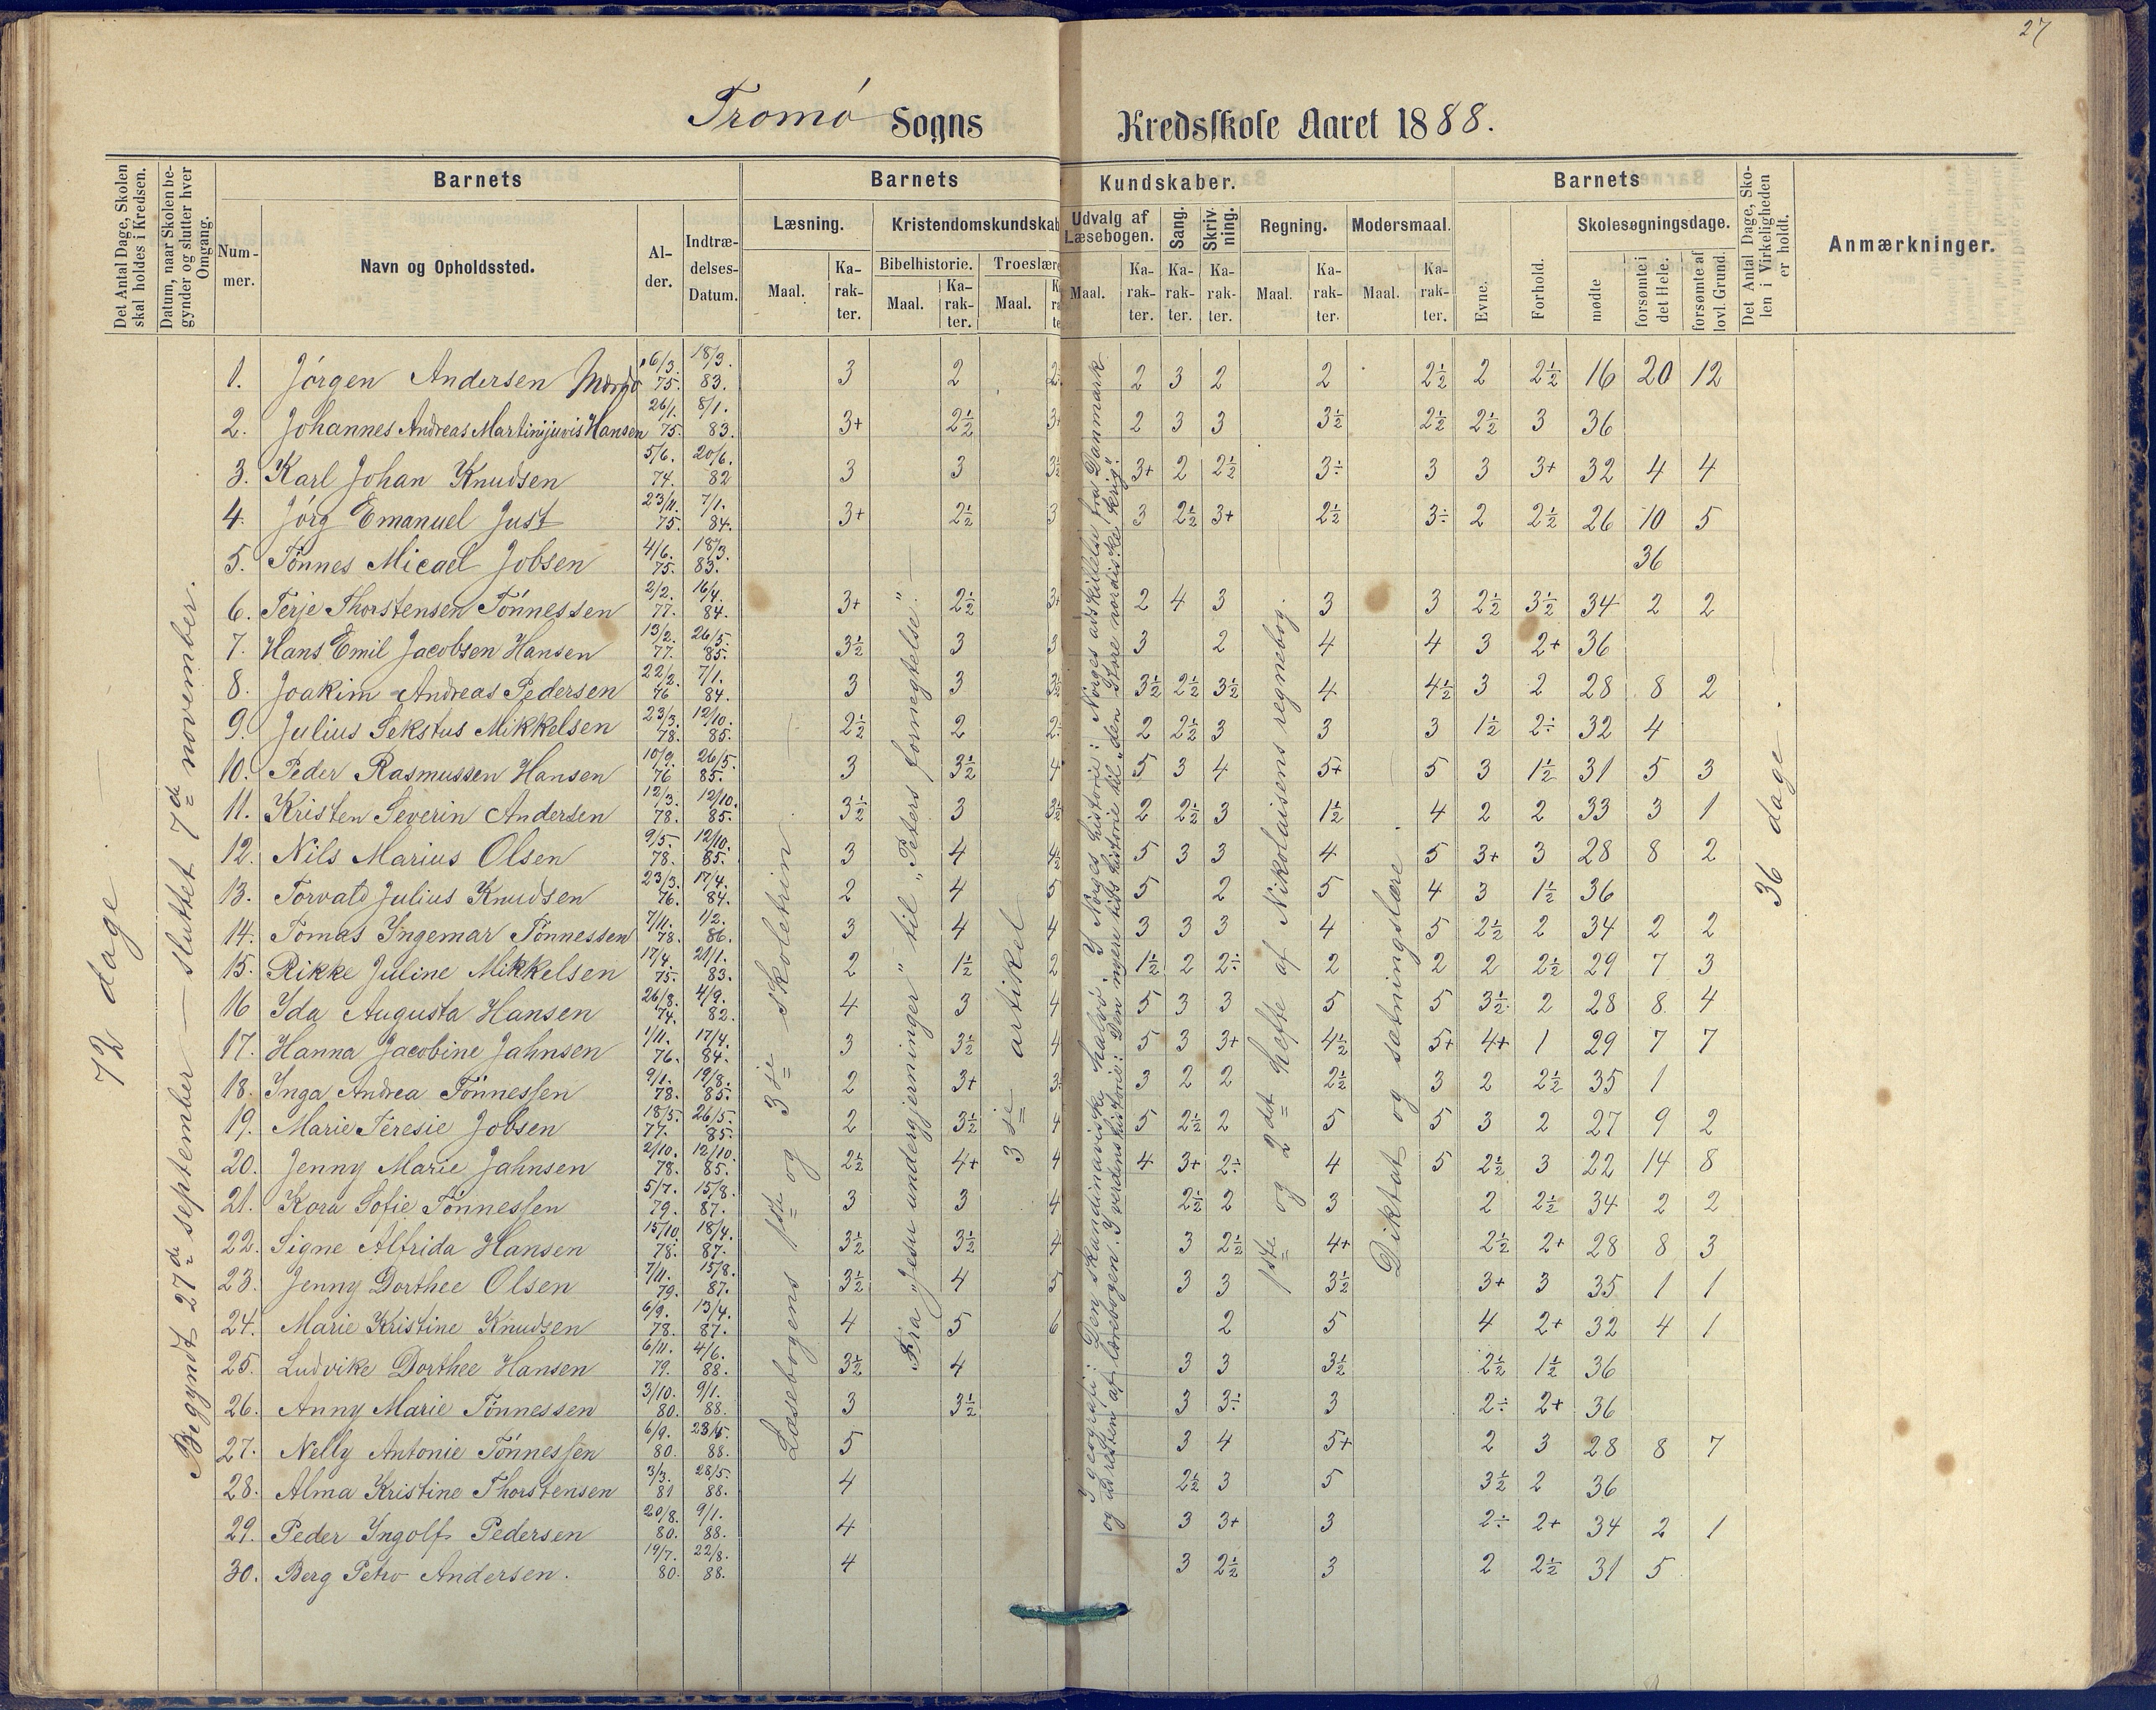 27
Tromø Sogns Kredsskole Aaret 1888.
Det Antal Dage, Skolen skal holdes i Kredsen.
Datum, naar Skolen begynder og slutter hver Omgang.
Barnets
Nummer.
Navn og Opholdssted.
Alder.
Indtrædelses-Datum.
Barnets Kundskaber.
Læsning.
Maal.
Karakter.
Kristendomskundskab
Bibelhistorie.
Maal.
Karakter.
Troeslære
Maal.
Udvalg af Læsebogen.
Maal.
Karakter.
Sang.
Karakter.
Skrivning.
Karakter.
Regning.
Maal.
Karakter.
Modersmaal.
Maal.
Karakter.
Barnets
Evne.
Forhold.
Skolesøgningsdage.
mødte
forsømte i det Hele.
forsømte af lovl. Grund.
Det Antal Dage, Skolen i Virkeligheden er holdt.
Anmærkninger.
72 dage.
Begyndt 27de september — sluttet 7de november.
Læsebogens 1ste og 3die skoletrin
Fra "Jesu undergjerninger" til "Peters fornegtelse".
3die artikel
I geografi: Den skandinaviske halvø. I Norges historie: Norges adskillelse fra Danmark
og resten af lærebogen. I verdenshistorie: Den nyere tids historie til "den store nordiske krig".
1ste og 2det hefte af Nikolaisens regnebog.
Diktat og sætningslære
36 dage.
1. Jørgen Andersen 6/3. 75. 18/3. 83. 3 2 2 2 3 2 2 2½ 2 2½ 16 20 12
2. Johannes Andreas Martinijuvis Hansen 26/1. 75. 8/1. 83. 3+ 2½ 3+ 2 3 3 3½ 2½ 2½ 3 36
3. Karl Johan Knudsen 5/6. 74. 20/6. 82 3 3 3½ 3+ 2 2½ 3÷ 3 3 3+ 32 4 4
4. Jörg Emanuel Just 23/11. 75. 7/1. 84. 3+ 2½ 3 3 2½ 3+ 2½ 3÷ 2 2½ 26 10 5
5. Tönnes Micael Jobsen 4/6. 75. 18/3. 83. 36
6. Terje Thorstensen Tönnessen 2/2. 77. 16/4. 84. 3+ 2½ 3+ 2 4 3 3 3 2½ 3½ 34 2 2
7. Hans Emil Jacobsen Hansen 13/2. 77. 26/5. 85. 3½ 3 3 3 2 4 4 3 2+ 36
8. Joakim Andreas Pedersen 22/2. 76 7/1. 84. 3 3 3½ 3½ 2½ 3½ 4 4½ 3 2 28 8 2
9. Julius Sekstus Mikkelsen 23/3. 78. 12/10. 85. 2½ 2 2÷ 2 2½ 3 3 3 1½ 2÷ 32 4
10. Peder Rasmussen Hansen 10/9. 76 26/5. 85. 3 3½ 4 5 3 4 5+ 5 3 1½ 31 5 3
11. Kristen Severin Andersen 12/3. 78. 12/10. 85. 3½ 3 3½ 2 2½ 3 1½ 4 2 2 33 3 1
12. Nils Marius Olsen 9/5. 78. 12/10. 85. 3 4 4½ 5 3 3 4 5 3+ 3 28 8 2
13. Torvald Julius Knudsen 23/3. 76. 17/4. 84. 2 4 5 5 2 5 4 3 1½ 36
14. Tomas Yngemar Tönnessen 7/11. 78. 1/2. 86. 3 4 4 3 3 3 4 5 2½ 2 34 2 2
15. Rikke Juline Mikkelsen 17/4. 75. 21/1. 83. 2 1½ 2 1½ 2 2÷ 2 2 2 2½ 29 7 3
16 Yda Augusta Hansen 26/8. 74. 4/9. 82. 4 3 4 5 3 3 5 5 3½ 2 28 8 4
17. Hanna Jacobine Jahnsen 1/11. 76. 17/4. 84. 3 3½ 4 5 3 3+ 4½ 5+ 4+ 1 29 7 7
18. Ynga Andrea Tönnessen 9/1. 78. 19/8. 85. 2 3+ 3÷ 3 2 2 2½ 3 2 2½ 35 1
19. Marie Teresie Jobsen 18/5. 77. 26/5. 85. 2 3½ 4 5 2½ 2 5 5 3 2 27 9 2
20. Jenny Marie Jahnsen 2/10. 78. 12/10. 85. 2½ 4+ 4 4 3+ 2÷ 4 5 2½ 3 22 14 8
21. Kora Sofie Tönnessen 5/7. 79. 15/8. 87. 3 3 4 2½ 2 3 2 2½ 34 2 2
22. Signe Alfrida Hansen 15/10. 78. 18/4. 87. 3½ 3½ 4 3 2½ 4+ 2½ 2+ 28 8 3
23. Jenny Dorthee Olsen 7/11. 79. 15/8. 87. 3½ 4 5 3 3 3½ 3+ 3 35 1 1
24. Marie Kristine Knudsen 6/9. 78. 13/4. 87. 4 5 6 2 5 4 2+ 32 4 1
25. Ludvike Dorthee Hansen 6/11. 79. 4/6. 88. 3½ 4 3 3 3½ 2½ 1½ 36
26. Anny Marie Tönnessen 3/10. 80. 9/1. 88. 3 3½ 3 3÷ 3 2÷ 2+ 36
27. Nelly Antonie Tönnessen 6/9. 80. 23/5. 88. 5 3 4 5+ 2 3 28 8 7
28. Alma Kristine Thorstensen 3/3. 81 28/5. 88. 4 2½ 3 5 3½ 2 36
29. Peder Yngolf Pedersen 20/8. 80. 9/1. 88. 4 3 3+ 3 2÷ 2+ 34 2 1
30. Berg Petro Andersen. 19/7. 80. 22/8. 88. 4 3 2½ 3 2 2½ 31 5